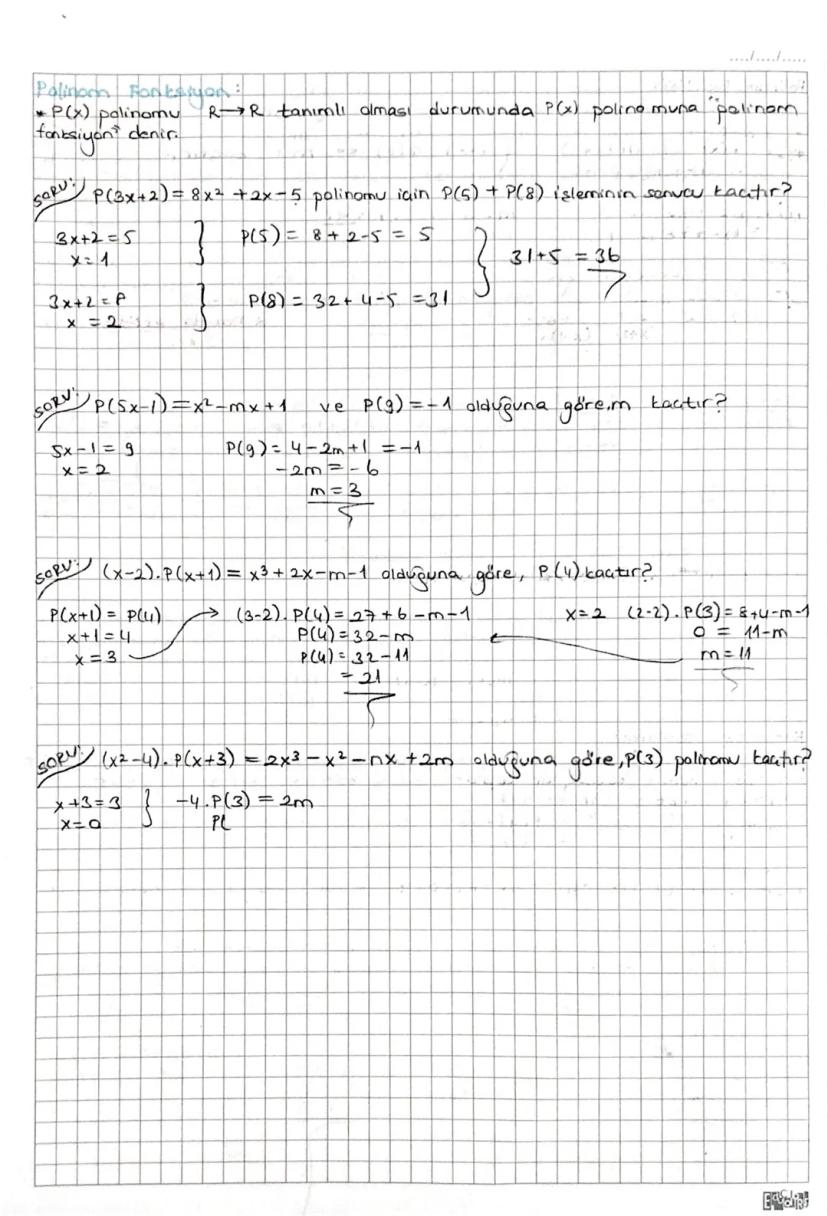 ..../..../.....
Polinom Fonksiyon:
* P(x) polinomu R→R tanımlı olması durumunda P(x) polinomuna "polinom
fonksiyon" denir.
SORU: P(3x+2) = 8x² + 2x - 5 polinomu için P(5) + P(8) işleminin sonucu kaçtır?
3x+2 = 5 } P(5) = 8 + 2 - 5 = 5
x = 1
} 31+5 = 36
3x+2 = 8 } P(8) = 32 + 4 - 5 = 31
x = 2
SORU: P(5x-1) = x² - mx + 1 ve P(9) = -1 olduğuna göre, m kaçtır?
5x-1 = 9 P(9) = 4 - 2m + 1 = -1
x = 2 -2m = -6
m = 3
SORU: (x-2).P(x+1) = x³ + 2x - m - 1 olduğuna göre, P(4) kaçtır?
P(x+1) = P(4) → (3-2).P(4) = 27 + 6 - m - 1 x=2 (2-2).P(3) = 8+4-m-1
x+1 = 4 P(4) = 32 - m 0 = 11-m
x = 3 P(4) = 32 - 11 m = 11
= 21
SORU: (x²-4).P(x+3) = 2x³ - x² - nx + 2m olduğuna göre, P(3) polinomu kaçtır?
x+3 = 3 } -4.P(3) = 2m
x = 0 P(